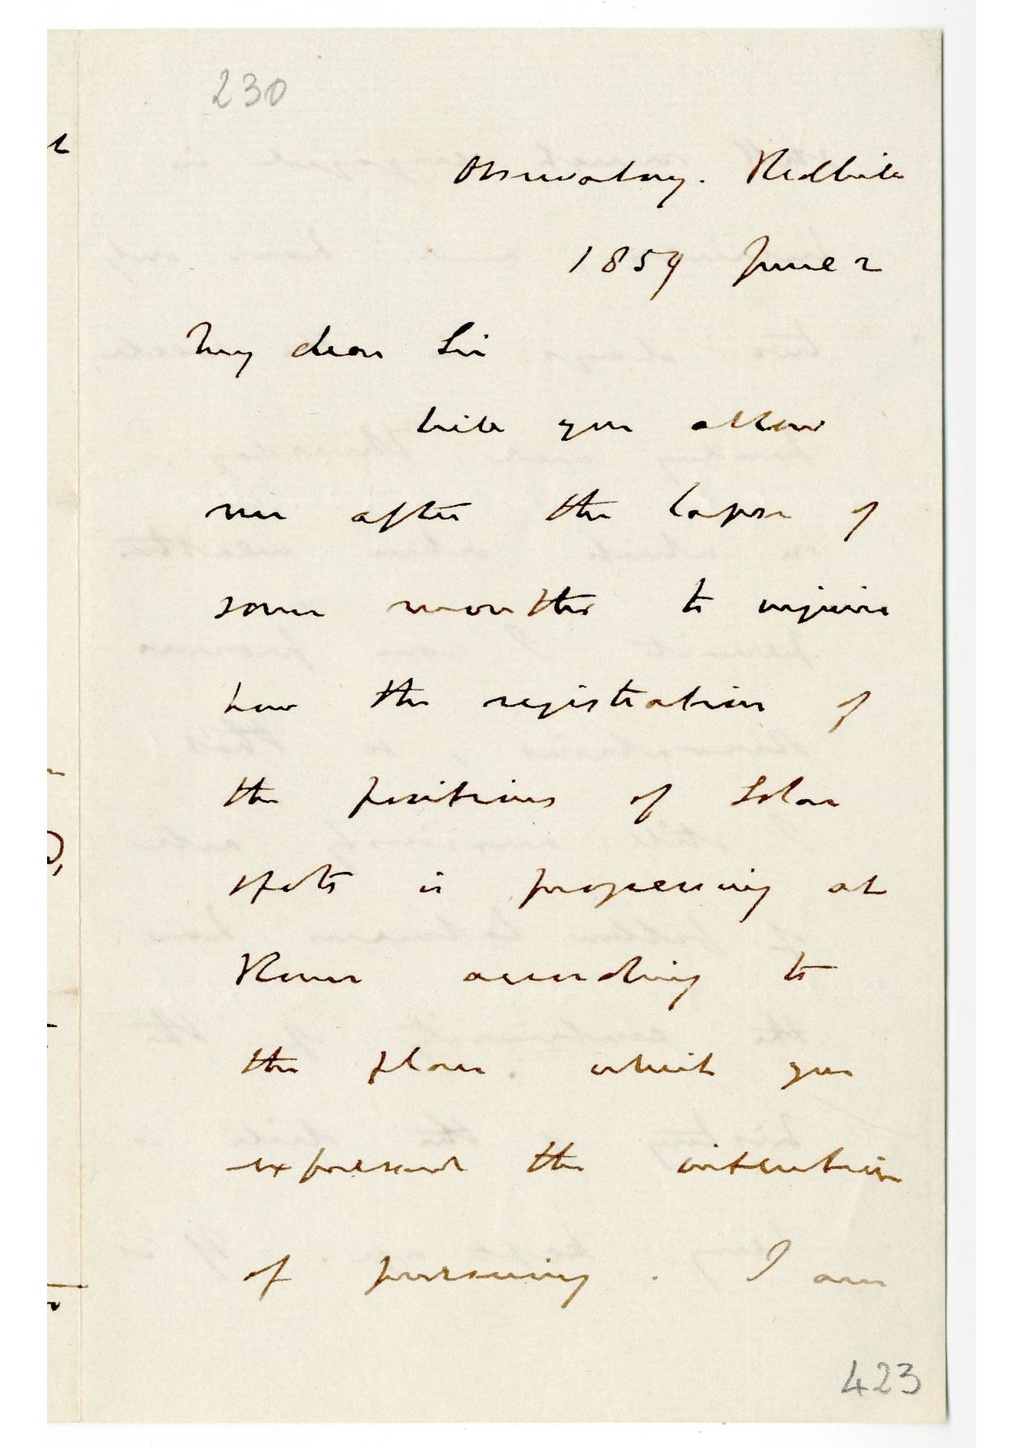 230
Observatory. Redhill
1859 June 2
My dear Sir
Will you allow
me after the lapse of
some months to inquire
how the registration of
the positions of Solar
spots is progressing at
Rome according to
the plan which you
expressed the intention
of pursuing. I am
423